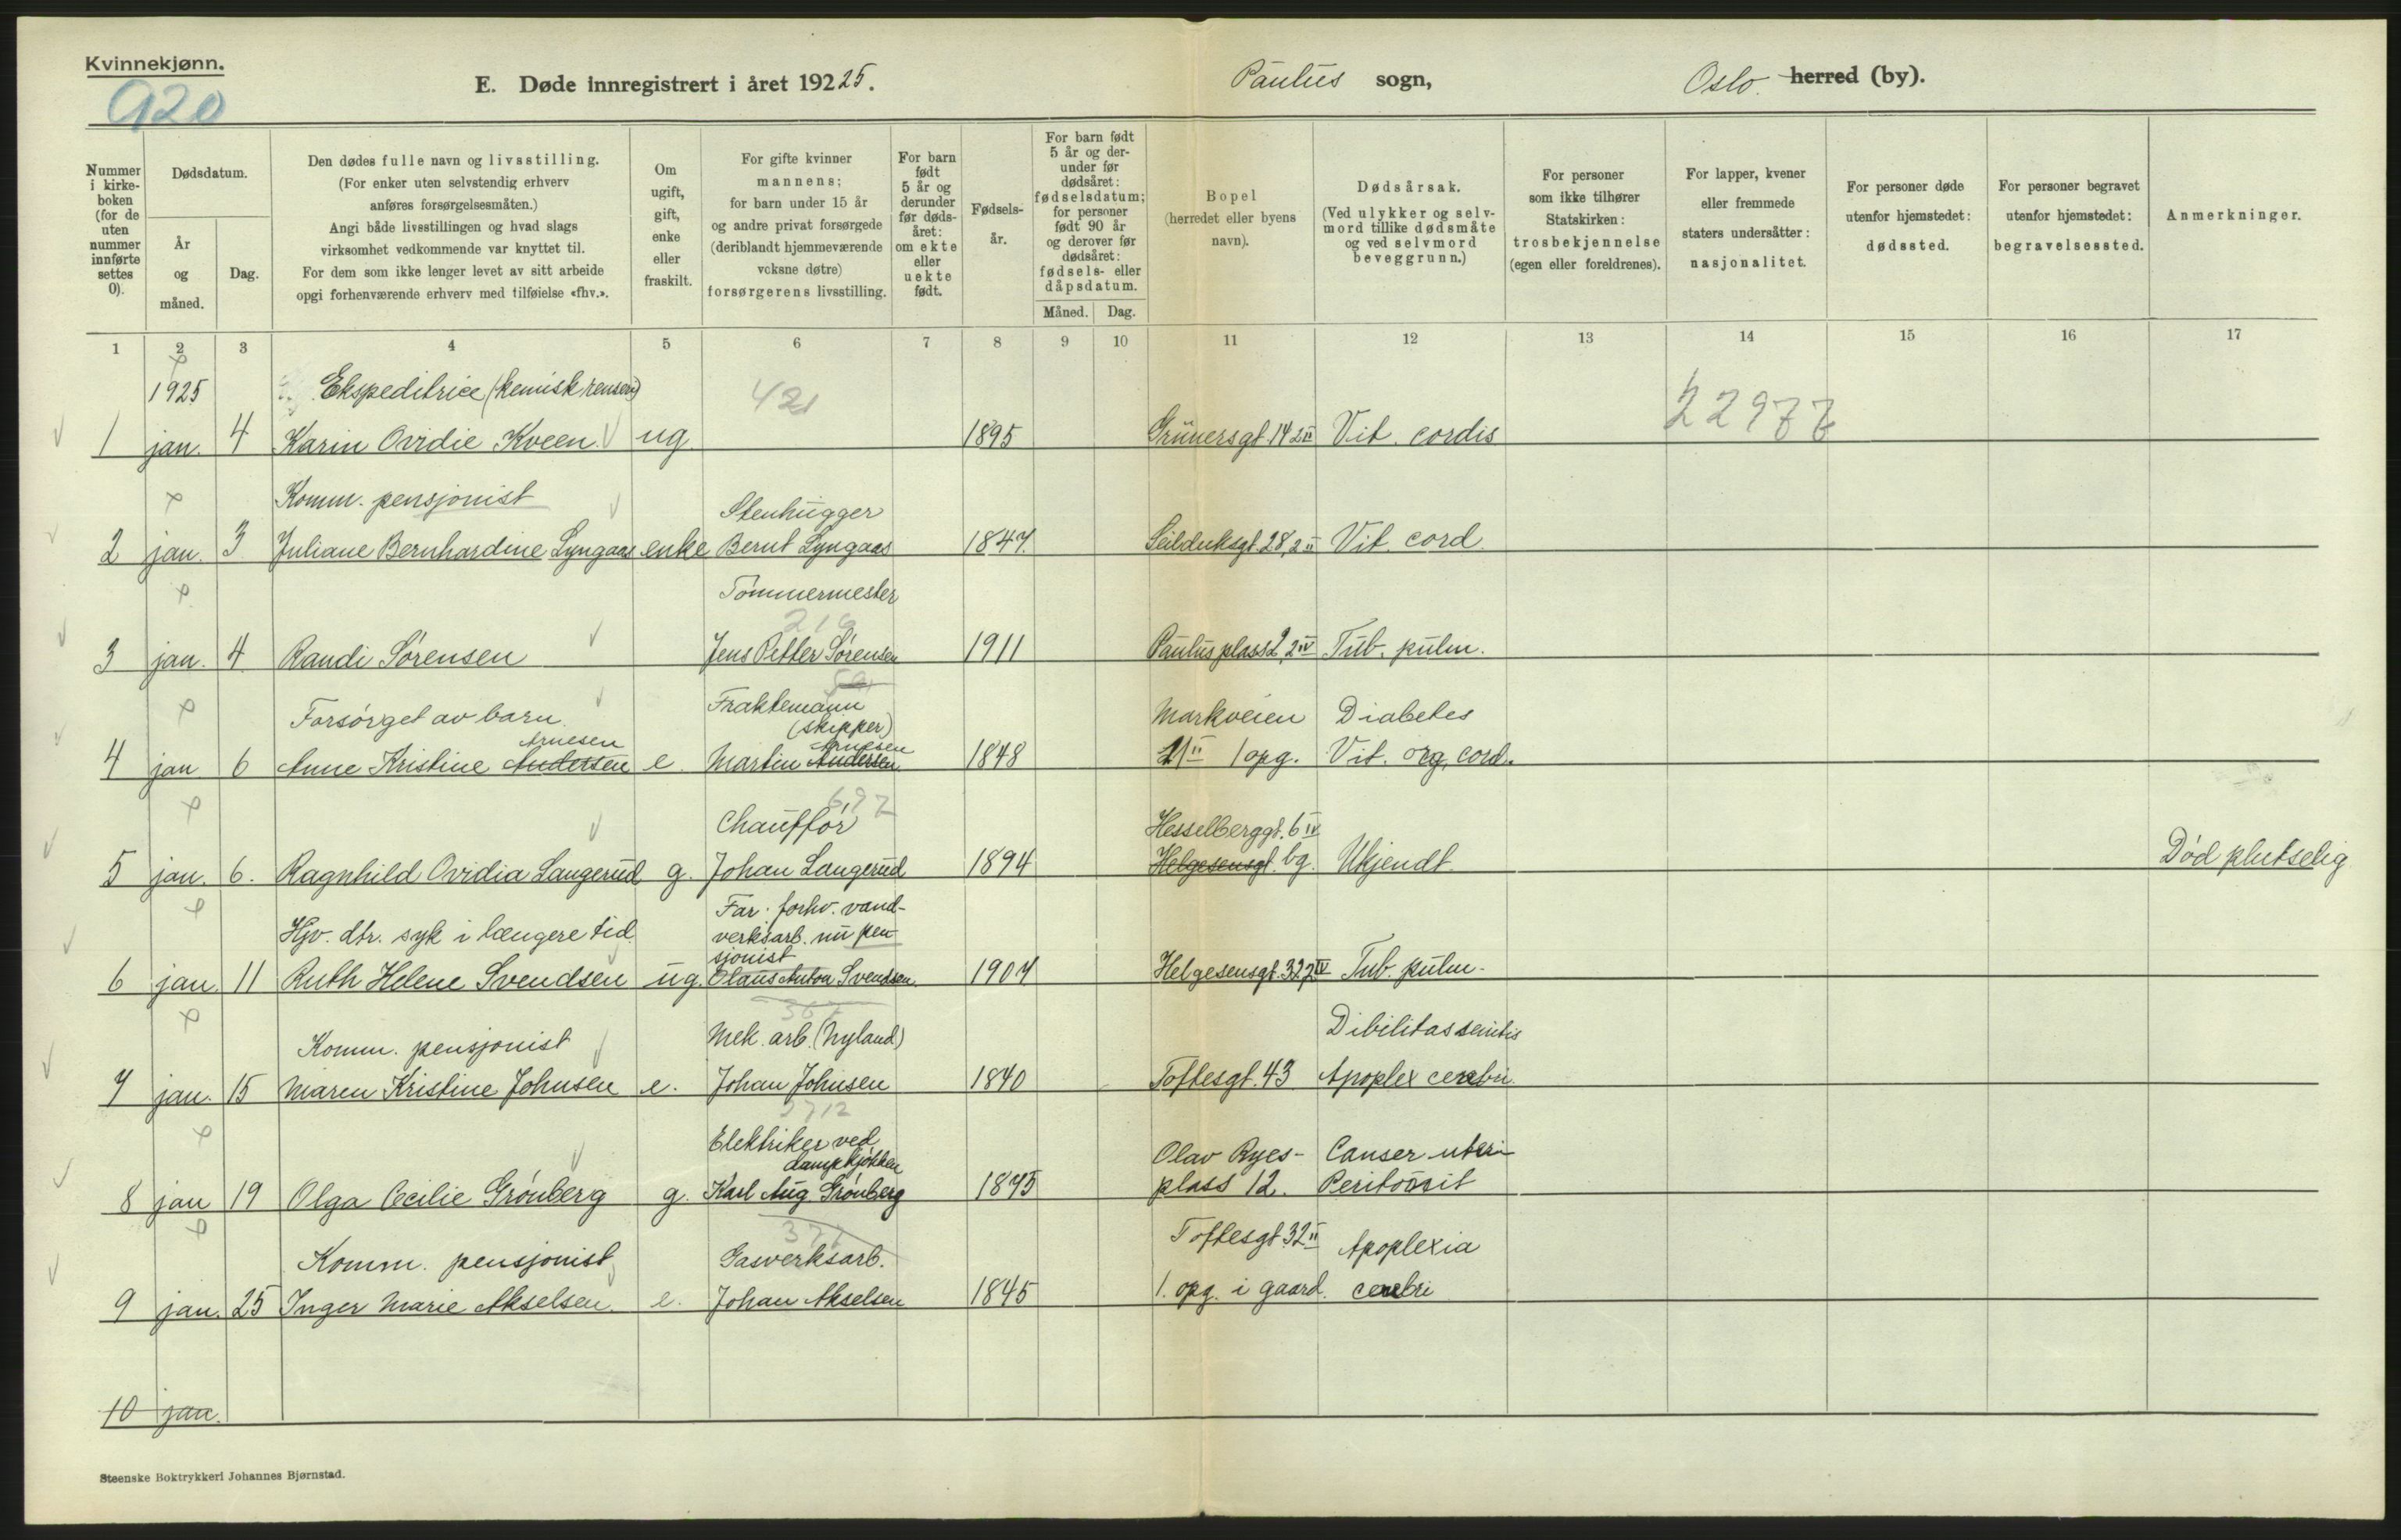 Kvinnekjønn.
920
E. Døde innregistrert i året 192 25.
Paulus sogn,
Oslo herred (by).
Nummer i kirke- boken (for de uten nummer innførte settes 0).
Dødsdatum.
År og måned.
Dag.
Den dødes fulle navn og livsstilling.
(For enker uten selvstendig erhverv
anføres forsørgelsesmåten.)
Angi både livsstillingen og hvad slags
virksomhet vedkommende var knyttet til.
For dem som ikke lenger levet av sitt arbeide
opgi forhenværende erhverv med tilføielse «fhv.».
Om ugift, gift, enke eller fraskilt.
For gifte kvinner
mannens;
for barn under 15 år
og andre privat forsørgede
(deriblandt hjemmeværende
voksne døtre)
forsørgerens livsstilling.
For barn født 5 år og derunder før døds- året: om ekte eller uekte født.
Fødsels- år.
For barn født 5 år og der- under før dødsåret: fødselsdatum; for personer født 90 år og derover før dødsåret: fødsels- eller dåpsdatum.
Måned. Dag.
Bopel
(herredet eller byens
navn).
Dødsårsak.
(Ved ulykker og selv-
mord tillike dødsmåte
og ved selvmord
beveggrunn.)
For personer
som ikke tilhører
Statskirken:
trosbekjennelse
(egen eller foreldrenes).
For lapper, kvener
eller fremmede
staters undersåtter:
nasjonalitet.
For personer døde
utenfor hjemstedet:
dødssted.
For personer begravet
utenfor hjemstedet:
begravelsessted.
Anmerkninger.
1 2 3 4 5 6 7 8 9 10 11 12 13 14 15 16 17
1925 Ekspeditrice (kemisk renseri) 421 22977
1 jan. 4 Karin Ovidie Kveen ug. 1895 Grünersgt. 14 2 II Vit. cordis
Komm. pensjonist Stenhugger
2 jan. 3 Juliane Bernhardine Lyngaas enke Bernt Lyngaas 1847. Seilduksgt. 28, 2 II Vit. cord.
Tømmermester
216
3 jan. 4 Randi Sørensen Jens Petter Sørensen 1911 Paulus plass 2, 2 IV Tub. pulm.
Forsørget av barn. Fraktemann (skipper) Markveien Diabetes
Arnesen Arnesen
4 jan 6 Anne Kristine Andersen e. Martin Andersen 1848 21 II 1 opg. Vit. org. cord.
697
Chauffør Hesselberggt. 6 IV
5 jan. 6. Ragnhild Ovidia Langerud g. Johan Langerud 1894 Helgesensgt. bg. Ukjendt. Død plutselig
Hjv. dtr. syk i længere tid. Far: forhv. vand-
verksarb. nu pen-
sjonist
6 jan. 11 Ruth Helene Svendsen ug. Olaus Anton Svendsen. 1907 Helgesensgt. 32 2 IV Tub. pulm.
Komm. pensjonist Mek. arb. (Nyland) Dibilitas senilis
7 jan. 15 Maren Kristine Johnsen e. Johan Johnsen 1840 Toftesgt. 43 Apoplex cerebri.
Elektriker ved
dampkjøkken Olav Ryes- Canser uteri
8 jan 19 Olga Cecilie Grønberg g. Karl Aug. Grønberg 1875 plass 12. Peritonit
Komm. pensjonist Gasverksarb. Toftesgt. 32 II Apoplexia
9 jan. 25 Inger Marie Akselsen e. Johan Akselsen 1845 1. opg. i gaard. cerebri
10 jan.
Steenske Boktrykkeri Johannes Bjørnstad.